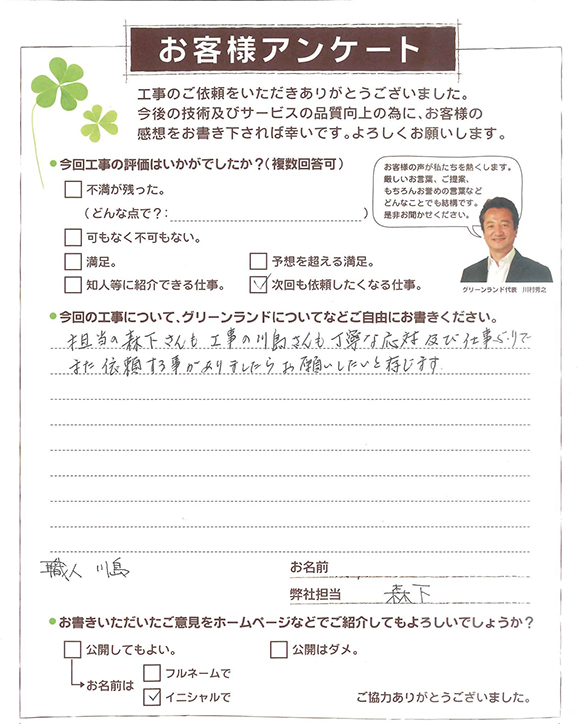 お客様アンケート
工事のご依頼をいただきありがとうございました。
今後の技術及びサービスの品質向上の為に、お客様の
感想をお書き下されば幸いです。よろしくお願いします。
今回工事の評価はいかがでしたか？（複数回答可）
不満が残った。
（どんな点で？：　）
可もなく不可もない。
満足。
予想を超える満足。
知人等に紹介できる仕事。
次回も依頼したくなる仕事。
お客様の声が私たちを熱くします。
厳しいお言葉、ご提案、
もちろんお誉めの言葉など
どんなことでも結構です。
是非お聞かせください。
グリーンランド代表　川村秀之
今回の工事について、グリーンランドについてなどご自由にお書きください。
担当の森下さんも 工事の川島さんも 丁寧な応対 及び 仕事ぶりで
また 依頼する事がありましたら お願いしたいと存じます
職人 川島
お名前
弊社担当　森下
お書きいただいたご意見をホームページなどでご紹介してもよろしいでしょうか？
公開してもよい。
公開はダメ。
お名前は
フルネームで
イニシャルで
ご協力ありがとうございました。